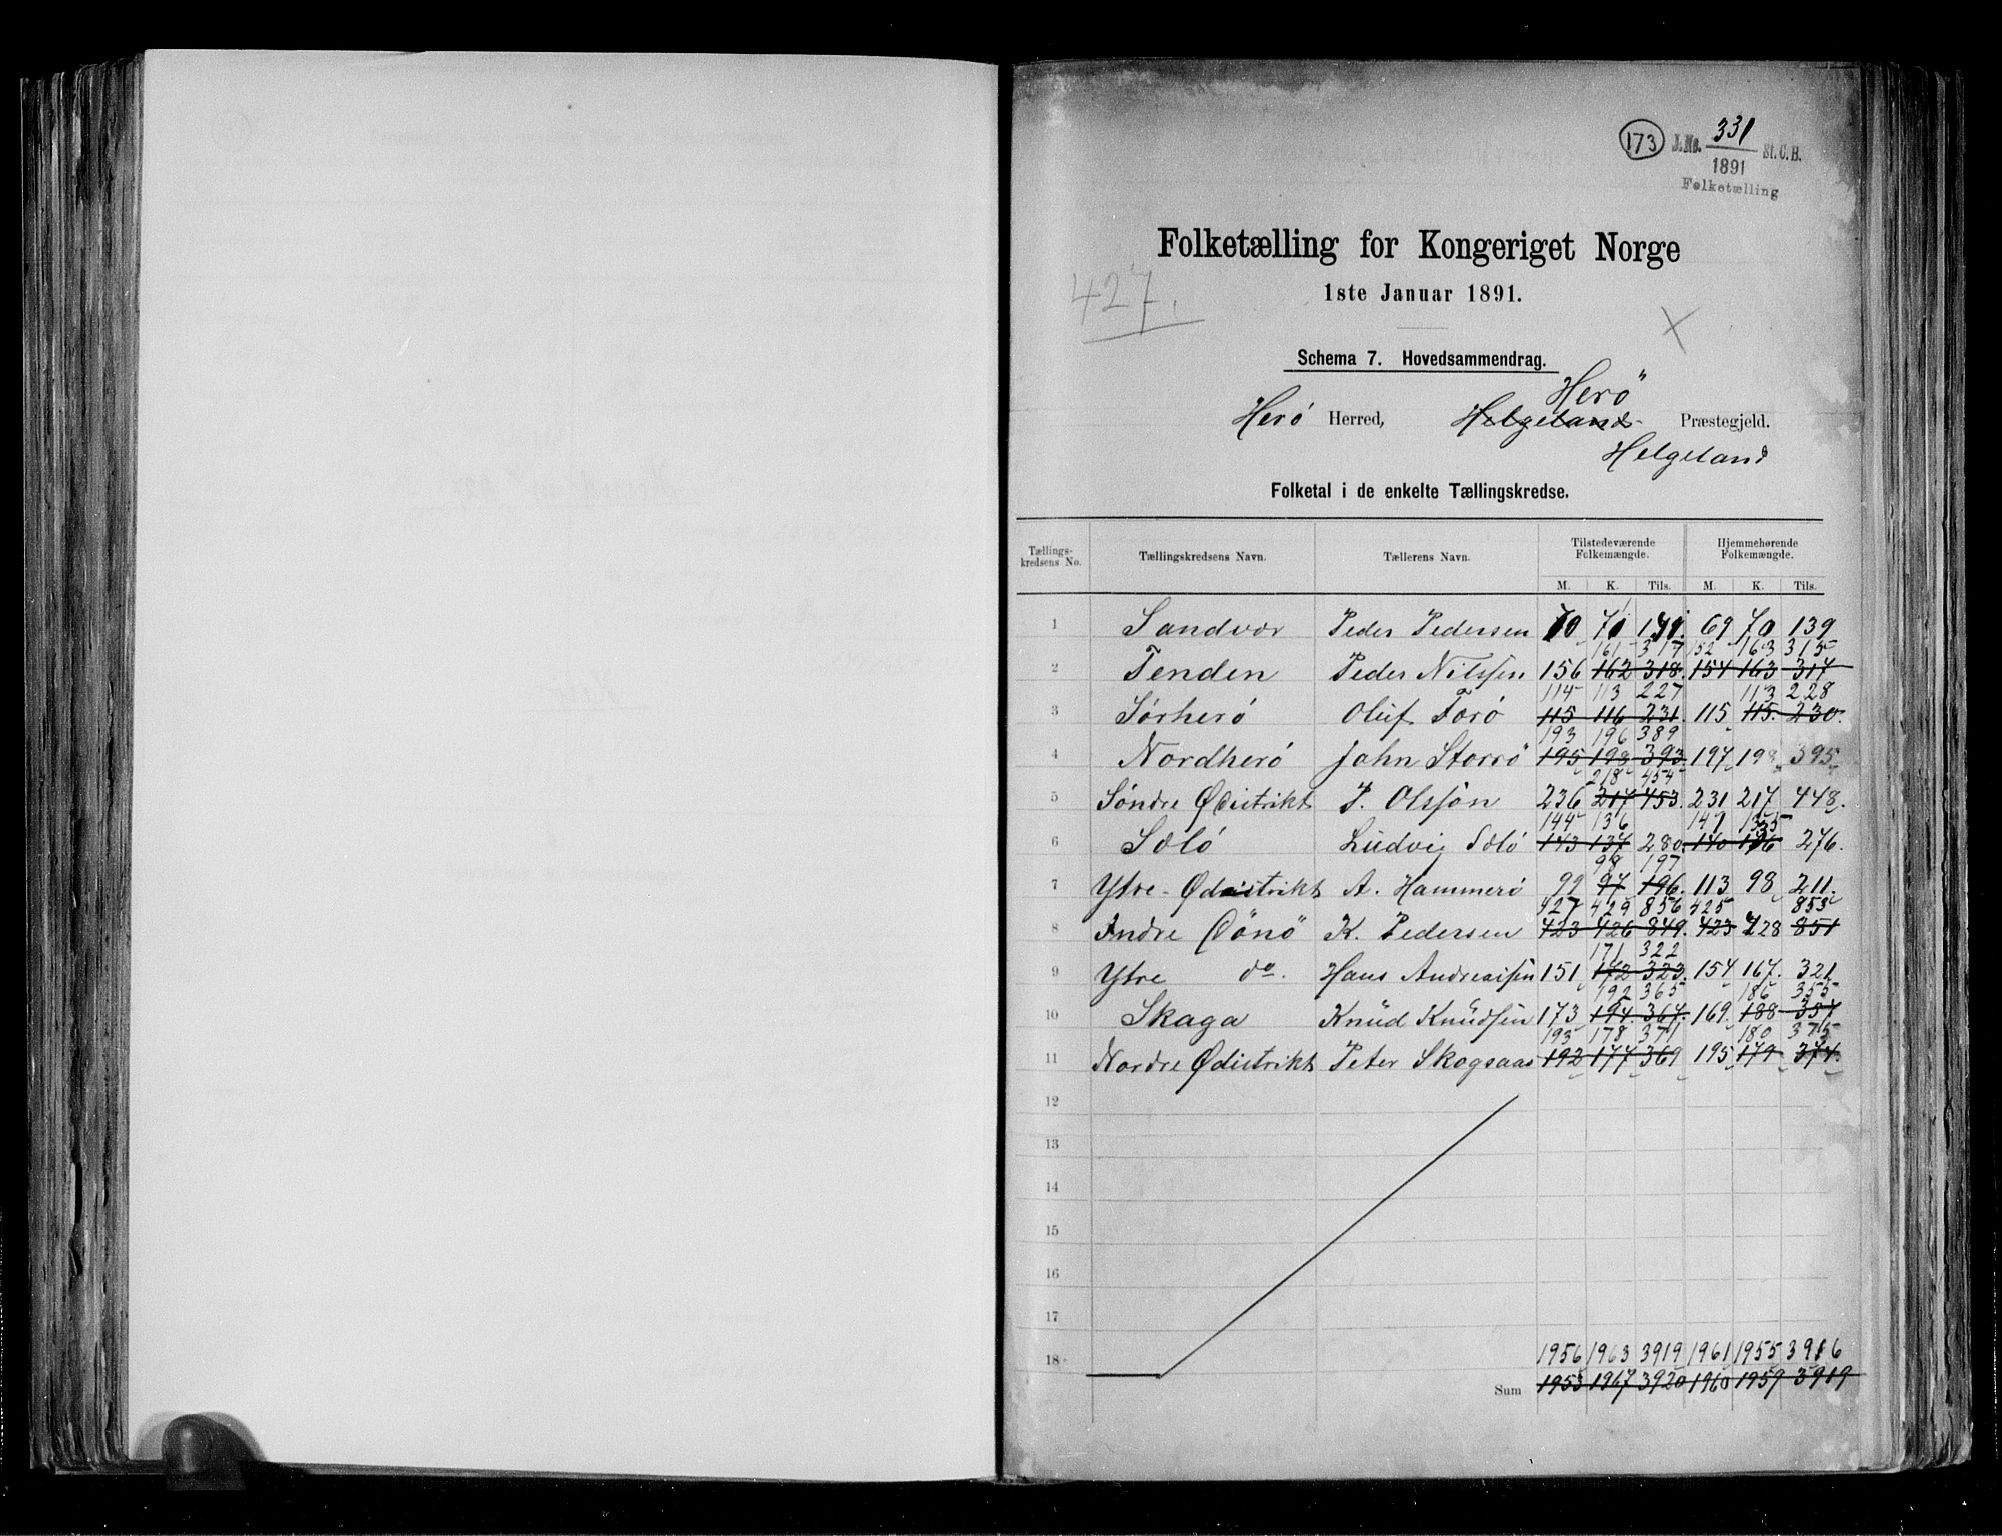 173 J.No. 331 St.C.B.
1891
Folketælling
Folketælling for Kongeriget Norge
427.
1ste Januar 1891.
X
Schema 7. Hovedsammendrag.
Herö
Herö Herred, Helgeland Præstegjeld.
Helgeland
Folketal i de enkelte Tællingskredse.
Tællings-kredsens No. Tællingskredsens Navn. Tællerens Navn. Tilstedeværende Folkemængde. Hjemmehørende Folkemængde.
M. K. Tils. M. K. Tils.
1 Sandvær Peder Pedersen 70 71 141. 69 70 139
161 317 152 163 315
2 Tenden Peder Nilssen 156 162 318. 154 163 317
114 113 227 113 228
3 Sørherö Oluf Forö 115 116 231. 115 115. 230.
193 196 389
4 Nordherö John Storrö 195 198 393. 197 198 395
218 454
5 Söndre Ødistrikt P. Olsson 236 217 453. 231 217 448.
144 136 141 135
6 Sölö Ludvig Sölö 143 137 280. 140 136 276.
98 197
7 Ytre - Ødistrikt A. Hammerö 99 97 196. 113 98 211.
427 429 856 425 853
8 Indre Dönö K. Pedersen 423 426 849. 423 428 851
171 322
9 Ytre do. Hans Andreassen 151 172 323. 154 167. 321
192 365 186 355
10 Skaga Knud Knudsen 173 194. 367. 169. 188 357
193 178 371 180 375
11 Nordre Ødistrikt Peter Skogsaas 192 177 369 195 179 374.
12
13
14
15
16
17
18
1956 1963 3919 1961 1955 3916
Sum 1953 1967 3920 1960 1959 3919